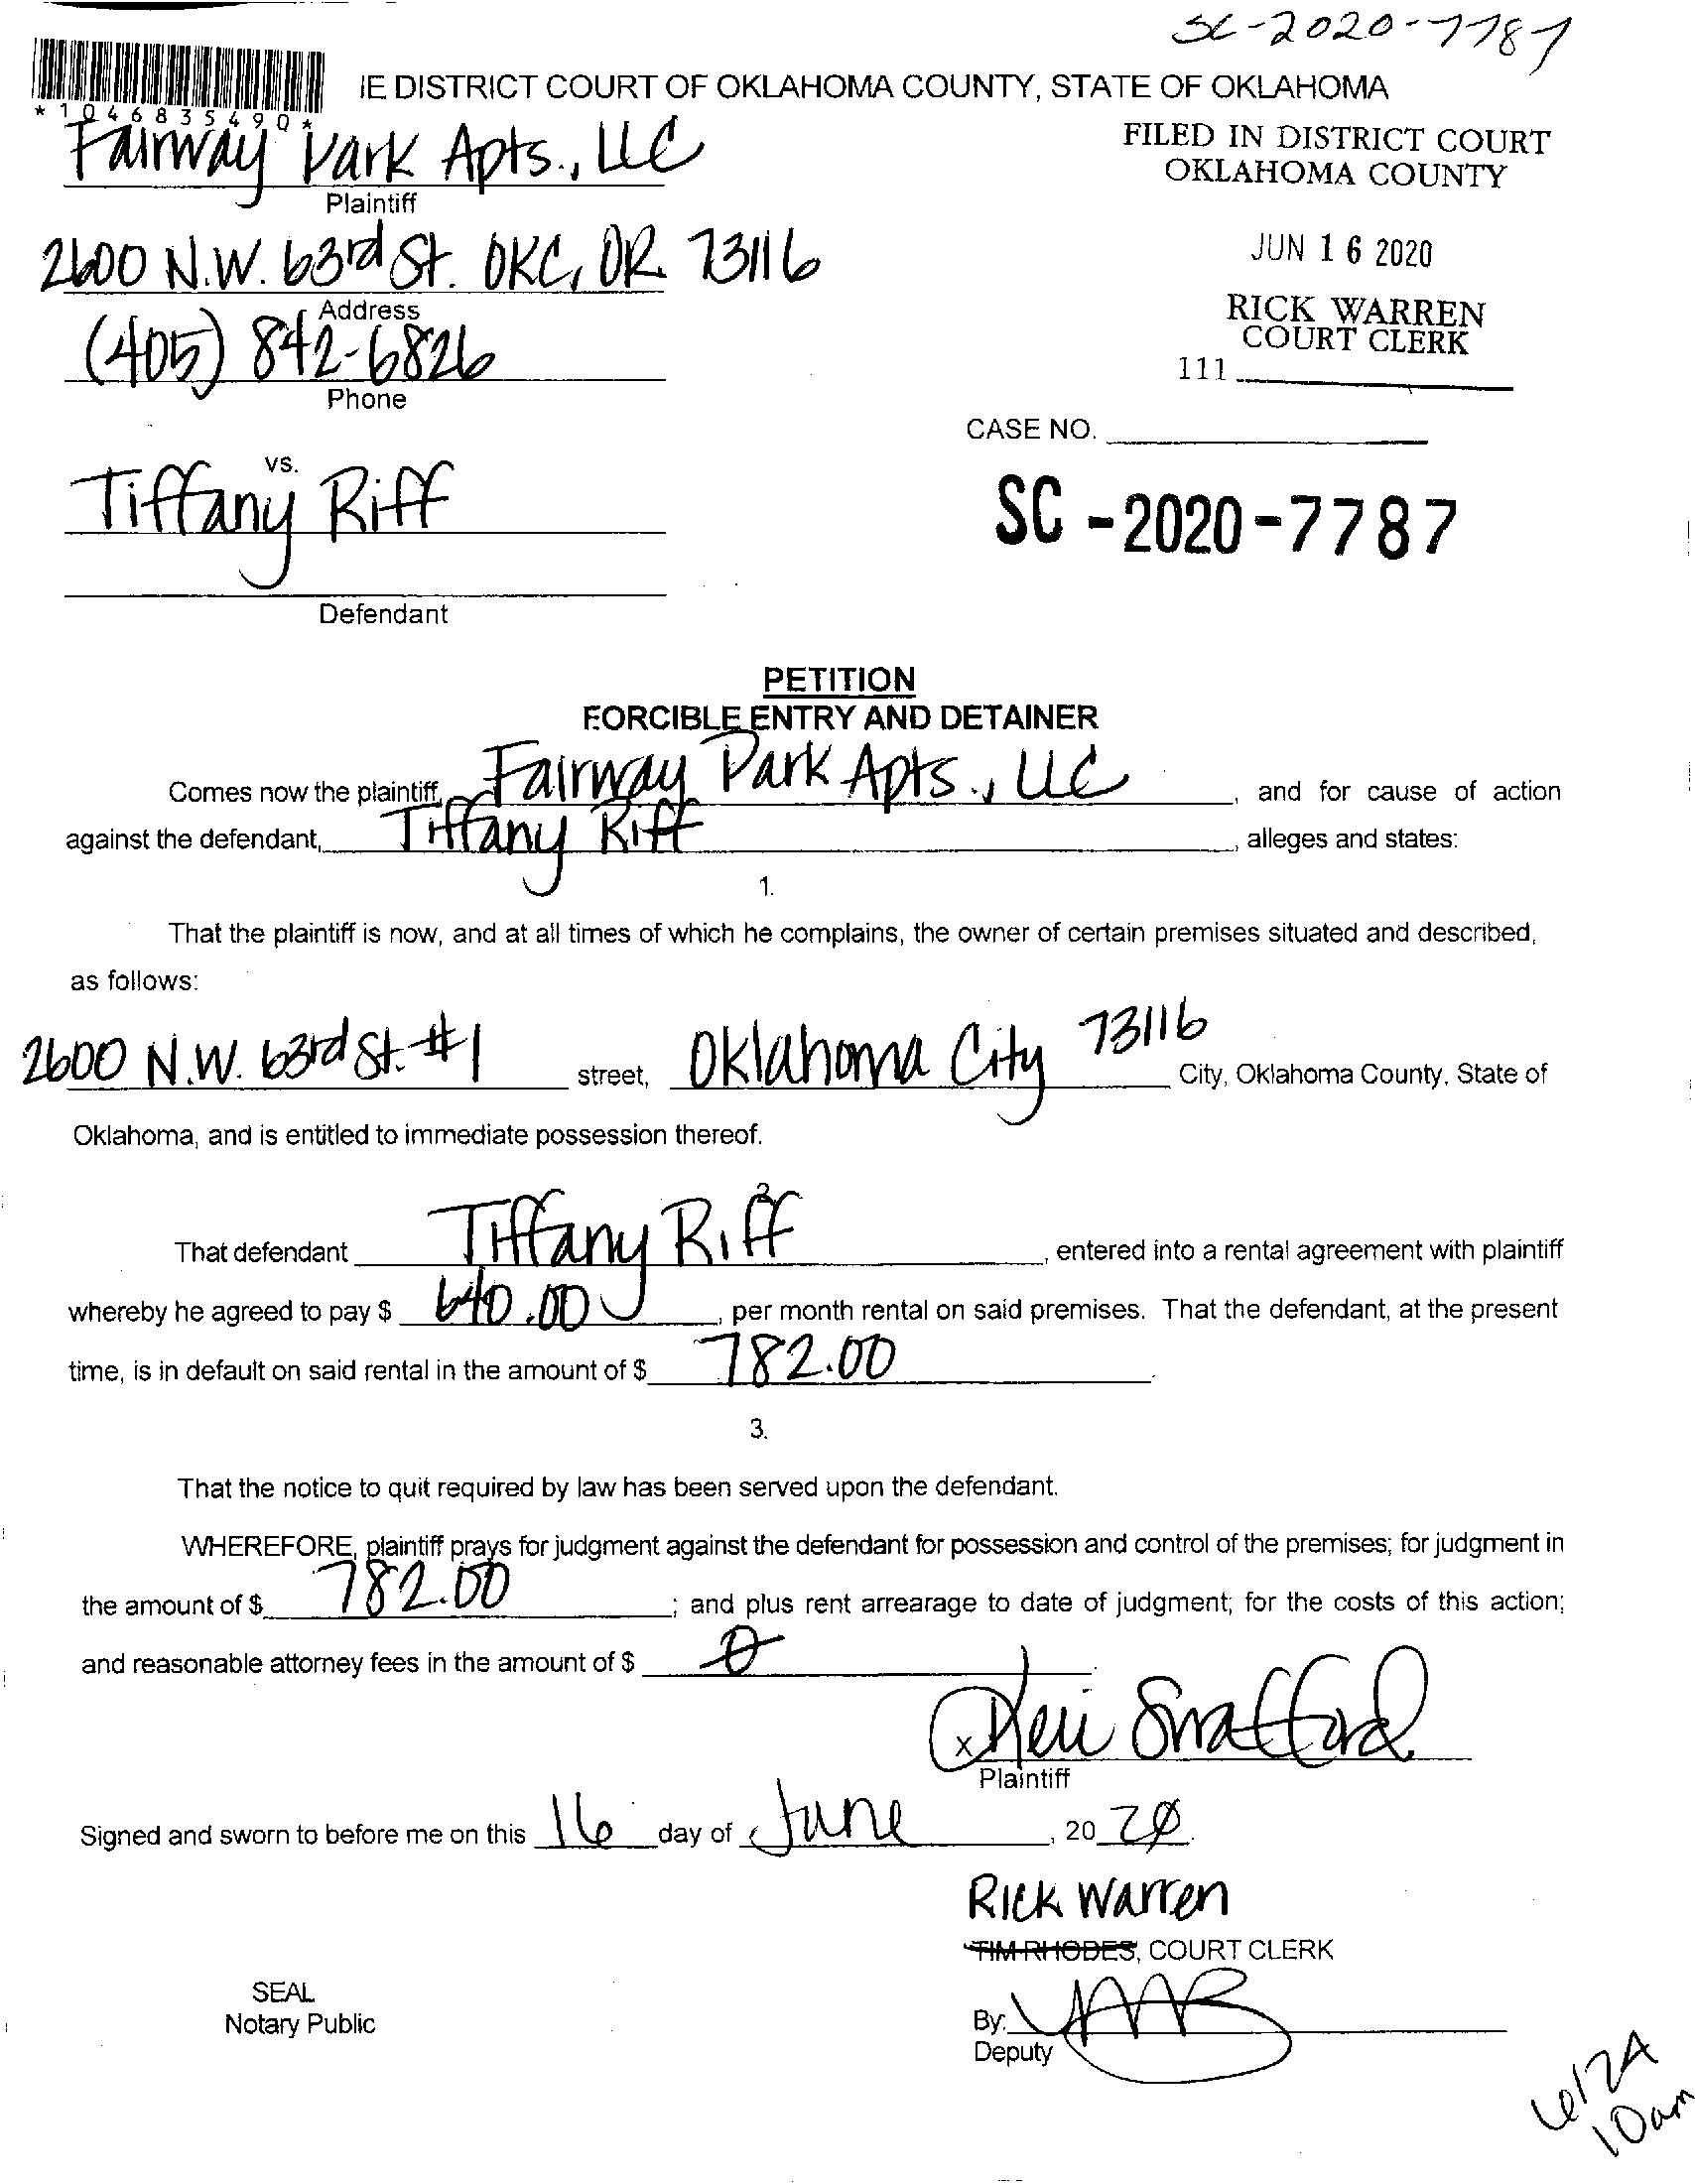 SC-2020-7787
*1046835490*
IE DISTRICT COURT OF OKLAHOMA COUNTY, STATE OF OKLAHOMA
Fairway Park Apts., LLC
Plaintiff
FILED IN DISTRICT COURT
OKLAHOMA COUNTY
2600 N.W. 63rd St. OKC, OK 73116
Address
JUN 16 2020
(405) 842-6826
Phone
RICK WARREN
COURT CLERK
111
CASE NO.
vs.
Tiffany Riff
SC-2020-7787
Defendant
PETITION
FORCIBLE ENTRY AND DETAINER
Comes now the plaintiff, Fairway Park Apts., LLC, and for cause of action
against the defendant, Tiffany Riff, alleges and states:
1.
That the plaintiff is now, and at all times of which he complains, the owner of certain premises situated and described,
as follows:
2600 N.W. 63rd St. #1 street, Oklahoma City 73116 City, Oklahoma County, State of
Oklahoma, and is entitled to immediate possession thereof.
2.
That defendant Tiffany Riff, entered into a rental agreement with plaintiff
whereby he agreed to pay $ 640.00, per month rental on said premises. That the defendant, at the present
time, is in default on said rental in the amount of $ 782.00.
3.
That the notice to quit required by law has been served upon the defendant.
WHEREFORE, plaintiff prays for judgment against the defendant for possession and control of the premises; for judgment in
the amount of $ 782.00; and plus rent arrearage to date of judgment; for the costs of this action;
and reasonable attorney fees in the amount of $ 0
x
Plaintiff
Signed and sworn to before me on this 16 day of June, 20 20.
Rick Warren
TIM RHODES, COURT CLERK
SEAL
Notary Public
By:
Deputy
6/24
10am